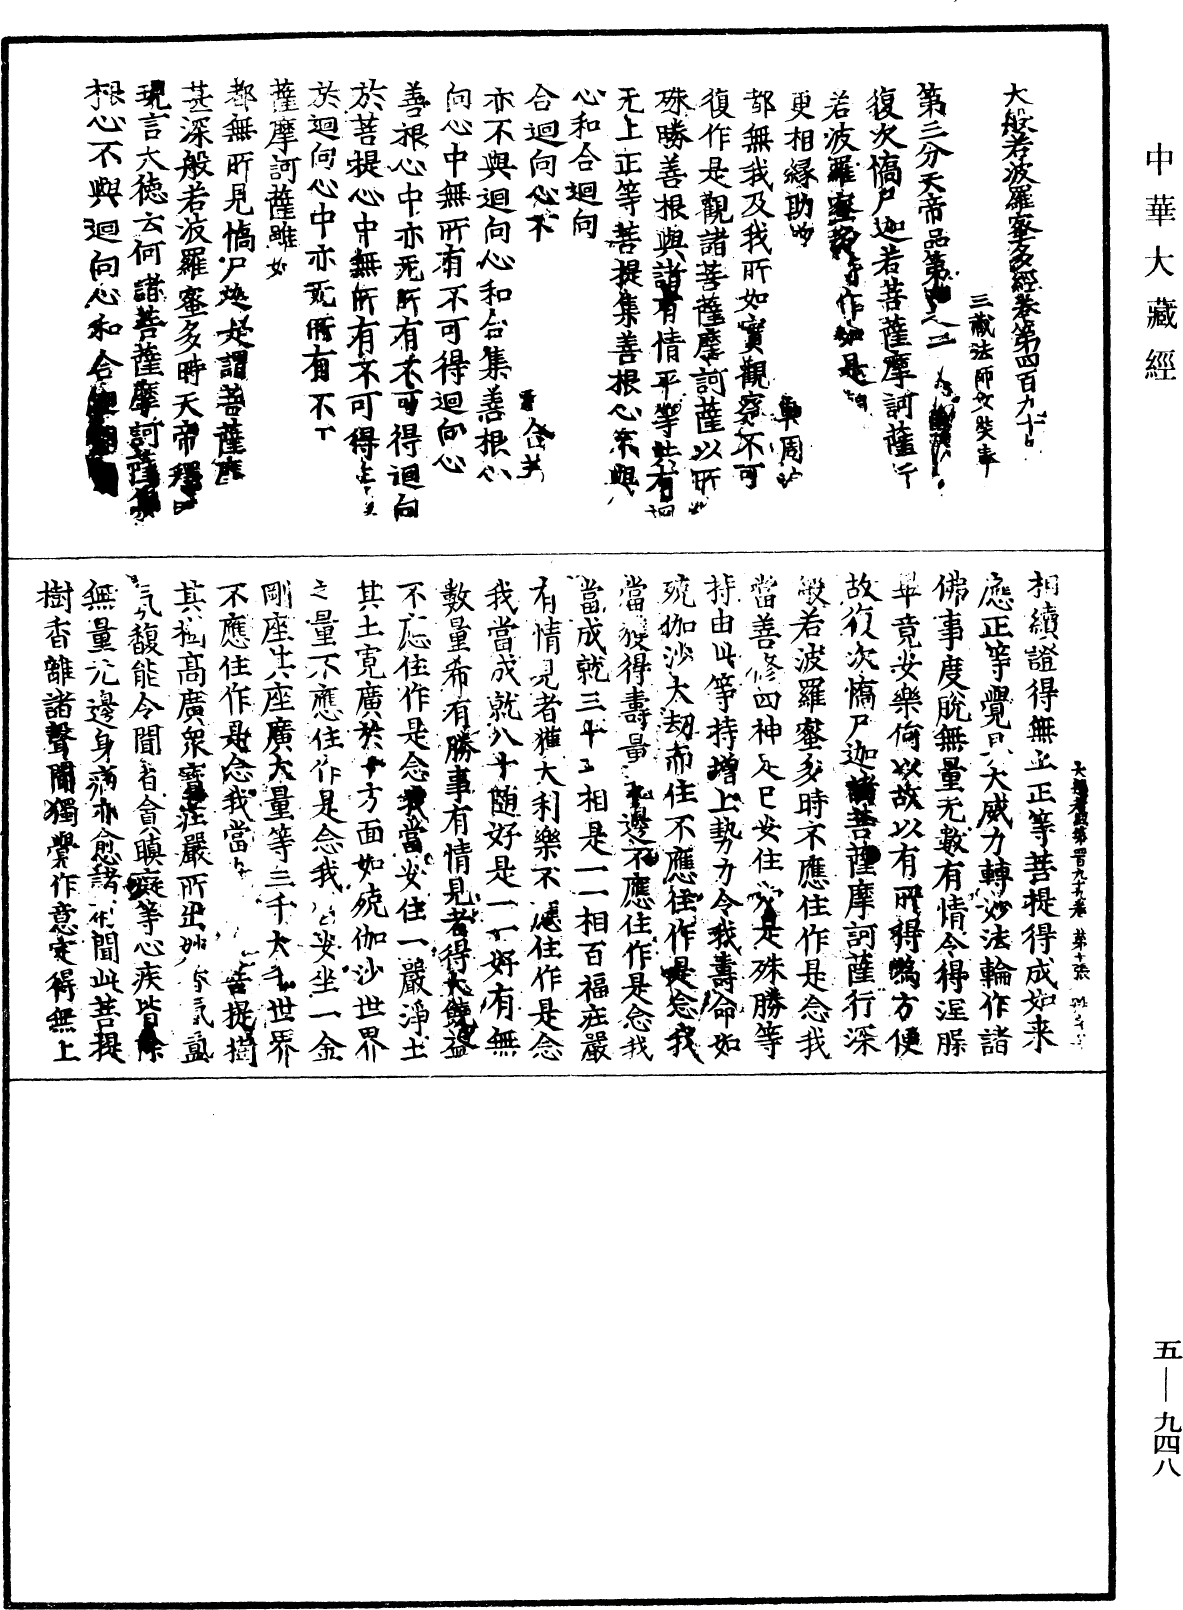 中華大藏經
大般若波羅蜜多經卷第四百九十
三藏法師
第三分天帝品第
復次憍尸迦若菩薩摩訶薩行
若波羅蜜多時作如是
更相緣助
都無我及我所如實觀察不可
復作是觀諸菩薩摩訶薩以所
殊勝善根與諸有情平等共有迴
无上正等菩提集善根心不與
心和合迴向
合迴向心不
亦不與迴向心和合集善根心
向心中無所有不可得迴向心
善根心中亦无所有不可得迴向
於菩提心中無所有不可得
於迴向心中亦无所有不
薩摩訶薩雖如
都無所見憍尸迦是謂菩薩摩
甚深般若波羅蜜多時天帝釋
現言大德云何諸菩薩摩訶薩
根心不與迴向心和合
大般若經第四百九十九卷 第十張
相續證得無上正等菩提得成如来
應正等覺具大威力轉妙法輪作諸
佛事度脫無量无數有情令得涅槃
畢竟安樂何以故以有所得爲方便
故復次憍尸迦諸菩薩摩訶薩行深
般若波羅蜜多時不應住作是念我
當善修四神足已安住 是殊勝等
持由此等持增上勢力令我壽命如
殑伽沙大劫而住不應住作是念我
當獲得壽量无邊不應住作是念我
當成就三十二相是一一相百福莊嚴
有情見者獲大利樂不應住作是念
我當成就八十随好是一一好有無
數量希有勝事有情見者得大饒益
不應住作是念我當安住一嚴淨土
其土寬廣於十方面如殑伽沙世界
之量不應住作是念我當安坐一金
剛座其座廣大量等三千大千世界
不應住作是念我當 菩提樹
其樹高廣衆寶莊嚴所出妙香氣
氛馥能令聞者貪瞋癡等心疾皆除
無量无邊身病亦愈諸有聞此菩提
樹香離諸聲聞獨覺作意定得無上
五—九四八